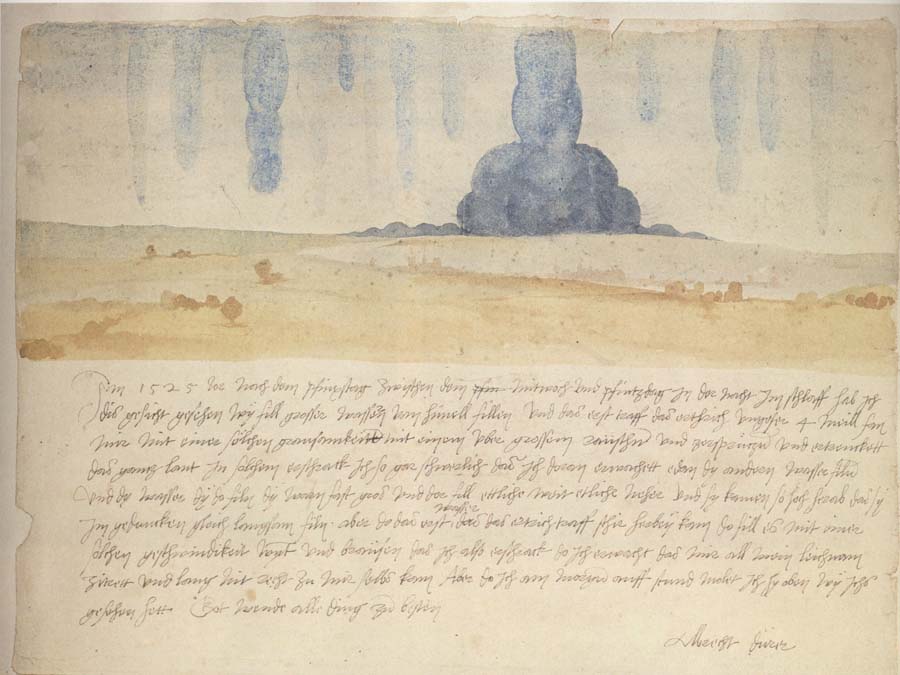 Im 1525 Jor nach dem pfinxstag zwischen dem pfin mitwoch und pfintzdag in der nacht im schlaff hab ich
dis gesicht gesehen wy fill grosser wassern vom himell fillen Und das erst traff das erthrich ungefer 4 meill fan
mir mit einer sölchen grausamkeitt mit einem uber grossem raüschn und zersprützn und ertrenckett
das gantz lant In solchem erschrack ich so gar schwerlich das ich doran erwachett edan dy andern wasser filn
Und dy wasser dy do filn dy warn fast gros und der fill ettliche weit etliche neher und sy kamen so hoch herab das sy
im gedancken gleich langsam filn. aber do das erst wasser das das ertrich traff schir herbey kam do fill es mit einer
sölchen geschwindikeit wynt und braüsen das ich also erschrack do ich erwacht das mir all mein leichnam
zitrett und lang nit recht zu mir selbs kam Aber do ich am morgn auff stund molet ich hy oben wy ichs
gesehen hett. Got wende alle ding zu besten
Albrecht dürer